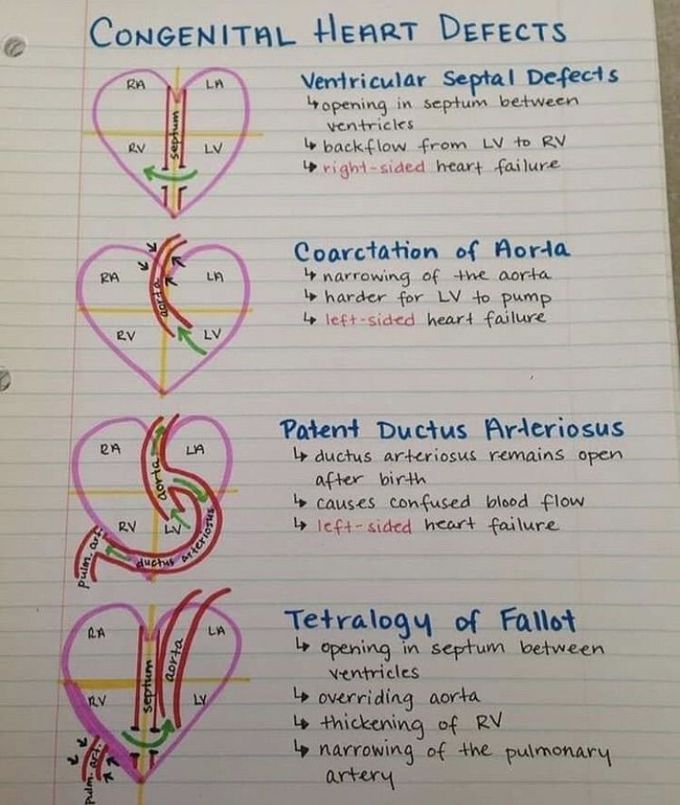 CONGENITAL HEART DEFECTS
RA LA
septum
RV LV
Ventricular Septal Defects
↳ opening in septum between
ventricles
↳ backflow from LV to RV
↳ right-sided heart failure
RA LA
aorta
RV LV
Coarctation of Aorta
↳ narrowing of the aorta
↳ harder for LV to pump
↳ left-sided heart failure
RA LA
aorta
RV LV
pulm. art.
ductus arteriosus
Patent Ductus Arteriosus
↳ ductus arteriosus remains open
after birth
↳ causes confused blood flow
↳ left-sided heart failure
RA LA
septum
aorta
RV LV
pulm. art.
Tetralogy of Fallot
↳ opening in septum between
ventricles
↳ overriding aorta
↳ thickening of RV
↳ narrowing of the pulmonary
artery